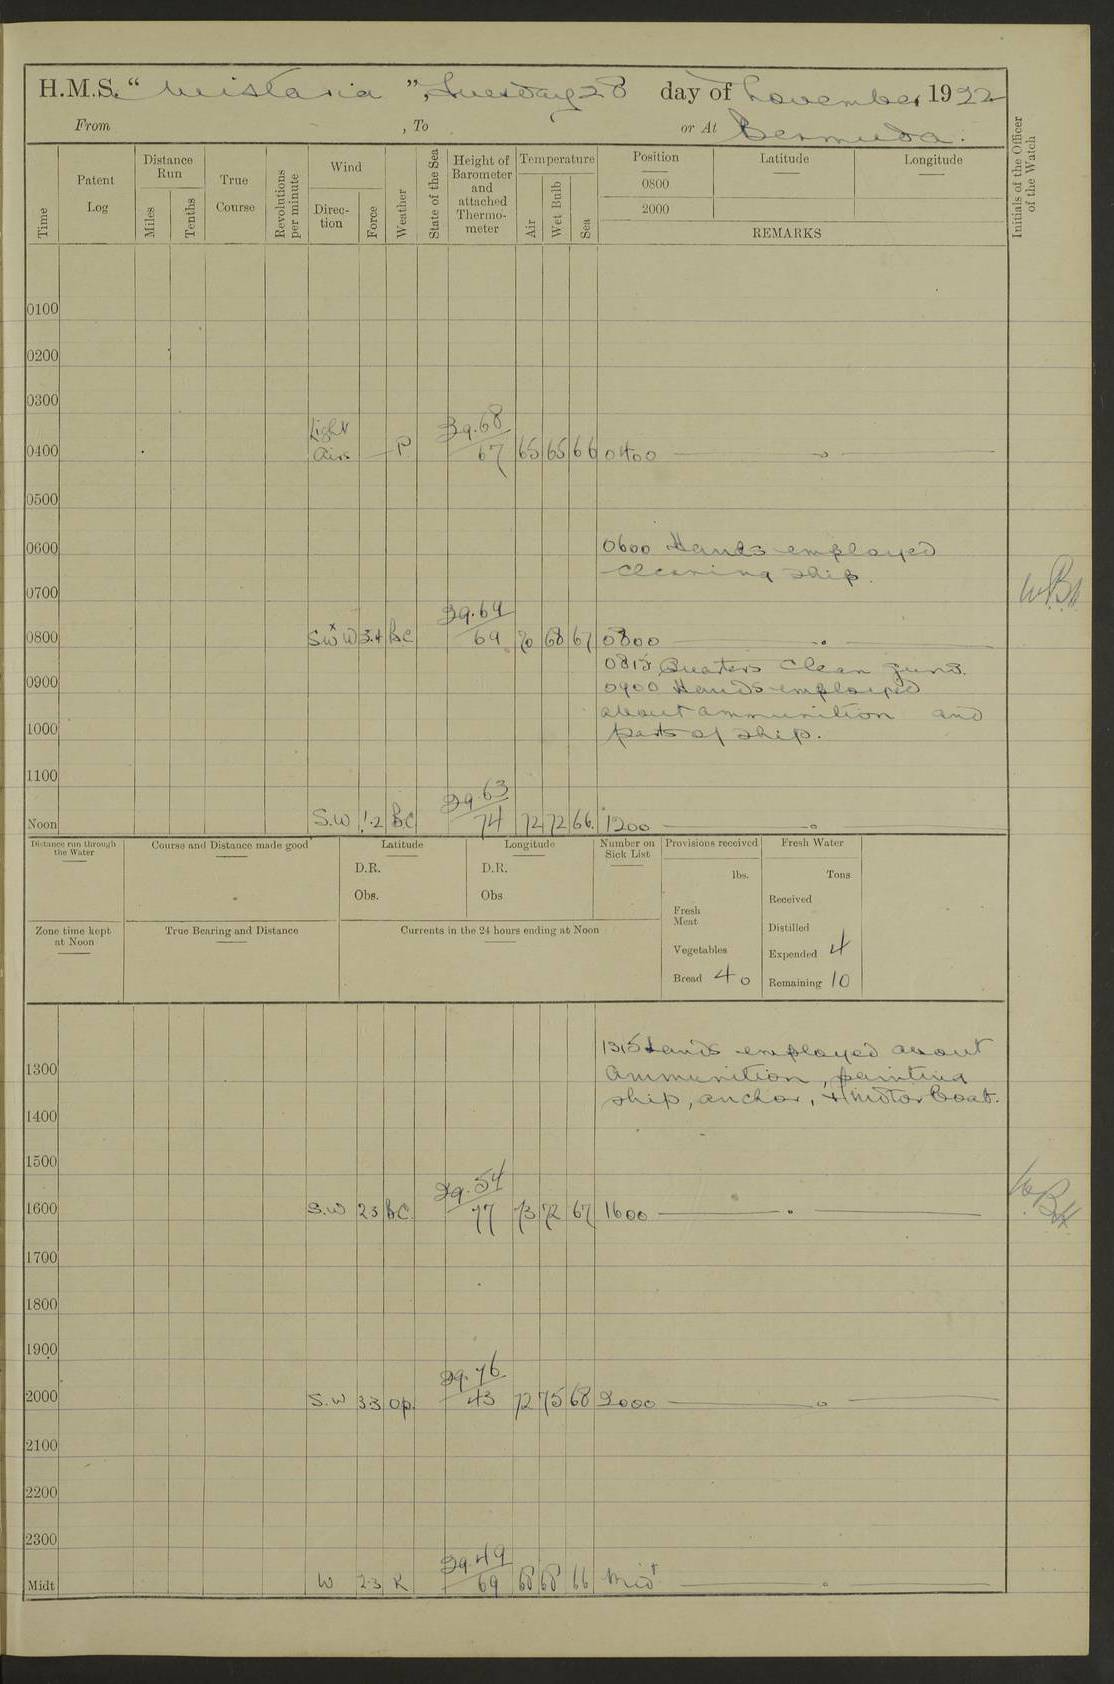 H.M.S. “ Wistaria ”, Tuesday 28 day of November, 1922
From , To or At Bermuda.
Time
Patent Log
Distance Run
Miles
Tenths
True Course
Revolutions per minute
Wind
Direction
Force
Weather
State of the Sea
Height of Barometer and attached Thermometer
Temperature
Air
Wet Bulb
Sea
Position
Latitude
Longitude
0800
2000
REMARKS
Initials of the Officer of the Watch
0100
0200
0300
Light 29.68
0400 Airs — P 67 65 65 66 0400
0500
0600 0600 Hands employed
cleaning ship.
0700
29.69
0800 SWxW 3.4 BC 69 70 68 67 0800
0815 Quarters Clean guns.
0900 0900 Hands employed
about ammunition and
1000 parts of ship.
1100
29.63
Noon S.W 1.2 BC 74 72 72 66 1200
Distance run through the Water
Course and Distance made good
Latitude
D.R.
Obs.
Longitude
D.R.
Obs
Number on Sick List
Provisions received
lbs.
Fresh Meat
Vegetables
Bread 40
Fresh Water
Tons
Received
Distilled
Expended 4
Remaining 10
Zone time kept at Noon
True Bearing and Distance
Currents in the 24 hours ending at Noon
1315 Hands employed about
1300 Ammunition, painting
ship, anchor, & motor boat.
1400
1500
29.54
1600 S.W 2 3 BC. 77 73 72 67 1600
1700
1800
1900
2000 S.W 3.3 op. 72 75 68 2000
2100
2200
2300
29.49
Midt W 2.3 R 69 68 68 66 Midt